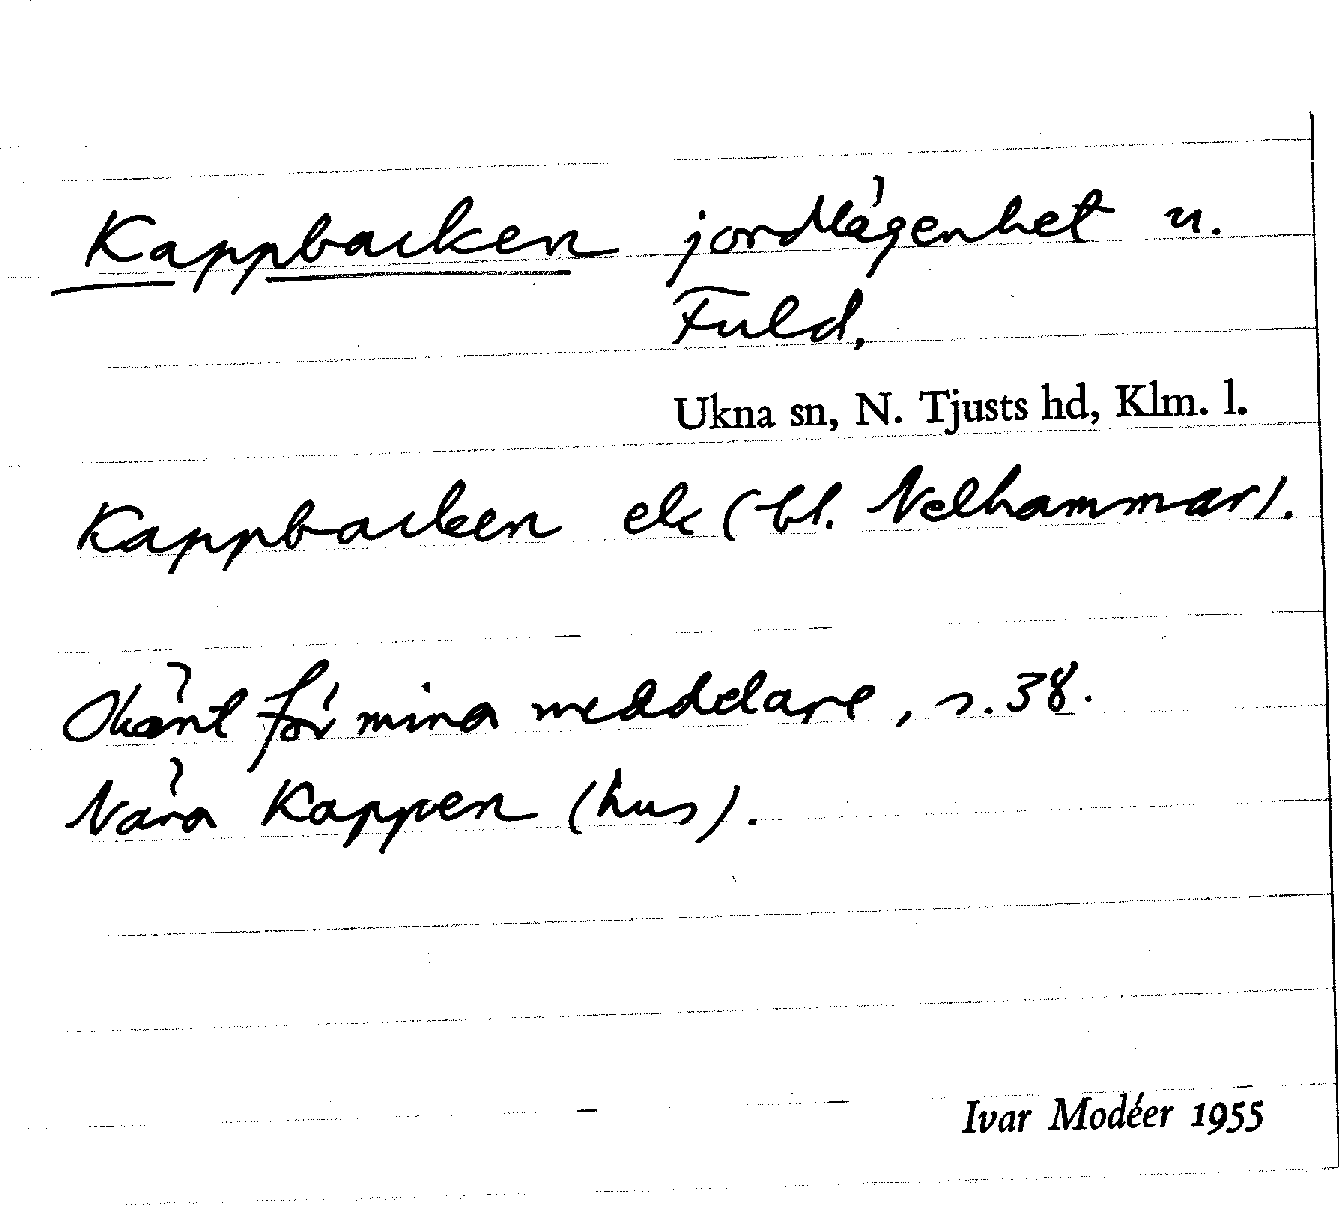 Kappbacken jordlägenhet u.
Fuld,
Ukna sn, N. Tjusts hd, Klm. l.
Kappbacken ek (bl. Nelhammar).
Okänt för mina meddelare, s. 38.
Nära Kappen (hus).
Ivar Modéer 1955